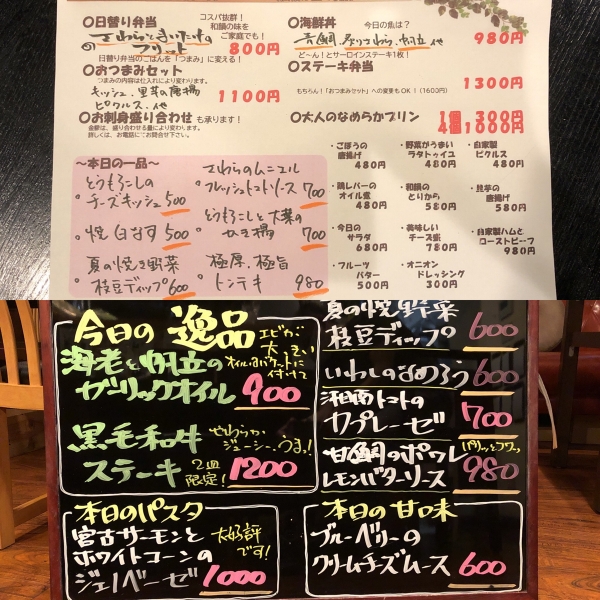 〇日替り弁当
コスパ抜群！
和顔の味を
ご家庭でも！
さわらとまいたけ
のフリット
800円
日替り弁当のごはんを「つまみ」に変える！
〇おつまみセット
つまみの内容は仕入れにより変わります。
キッシュ、里芋の唐揚
ピクルス、他
1100円
〇お刺身盛り合わせも承ります！
金額は、盛り合わせる量により変わります。
詳しくは、お電話にてお問合せ下さい。
〇海鮮丼
今日の魚は？
真鯛、炙りさわら、帆立 他
980円
ど～ん！とサーロインステーキ1枚！
〇ステーキ弁当
1300円
もちろん！「おつまみセット」への変更もOK！(1600円)
〇大人のなめらかプリン
1個 300円
4個1000円
～本日の一品～
とうもろこしの
チーズキッシュ 500
焼 白なす 500
夏の焼き野菜
枝豆ディップ 600
さわらのムニエル
フレッシュトマトソース 700
とうもろこしと大葉の
かき揚 700
極厚、極旨
トンテキ 980
・ごぼうの
唐揚げ
480円
・野菜がうまい
ラタトゥイユ
480円
・自家製
ピクルス
480円
・鶏レバーの
オイル煮
480円
・和顔の
とりから
580円
・里芋の
唐揚げ
580円
・今日の
サラダ
680円
・美味しい
チーズ
780円
・自家製ハムと
ローストビーフ
980円
・フルーツ
バター
500円
・オニオン
ドレッシング
300円
今日の 逸品
エビが
大きい
海老と帆立の
オイルはバケットに
付けて
ガーリックオイル
900
黒毛和牛
やわらか
ジューシー、うまっ！
ステーキ
2皿
限定！
1200
夏の焼野菜
枝豆ディップ 600
いわしのなめろう 600
湘南トマトの
カプレーゼ 700
甘鯛のポワレ
パリッとフワッ
レモンバターソース 980
本日のパスタ
宮古サーモンと
ホワイトコーンの
ジェノベーゼ
大好評
です！
1000
本日の甘味
ブルーベリーの
クリームチーズムース
600